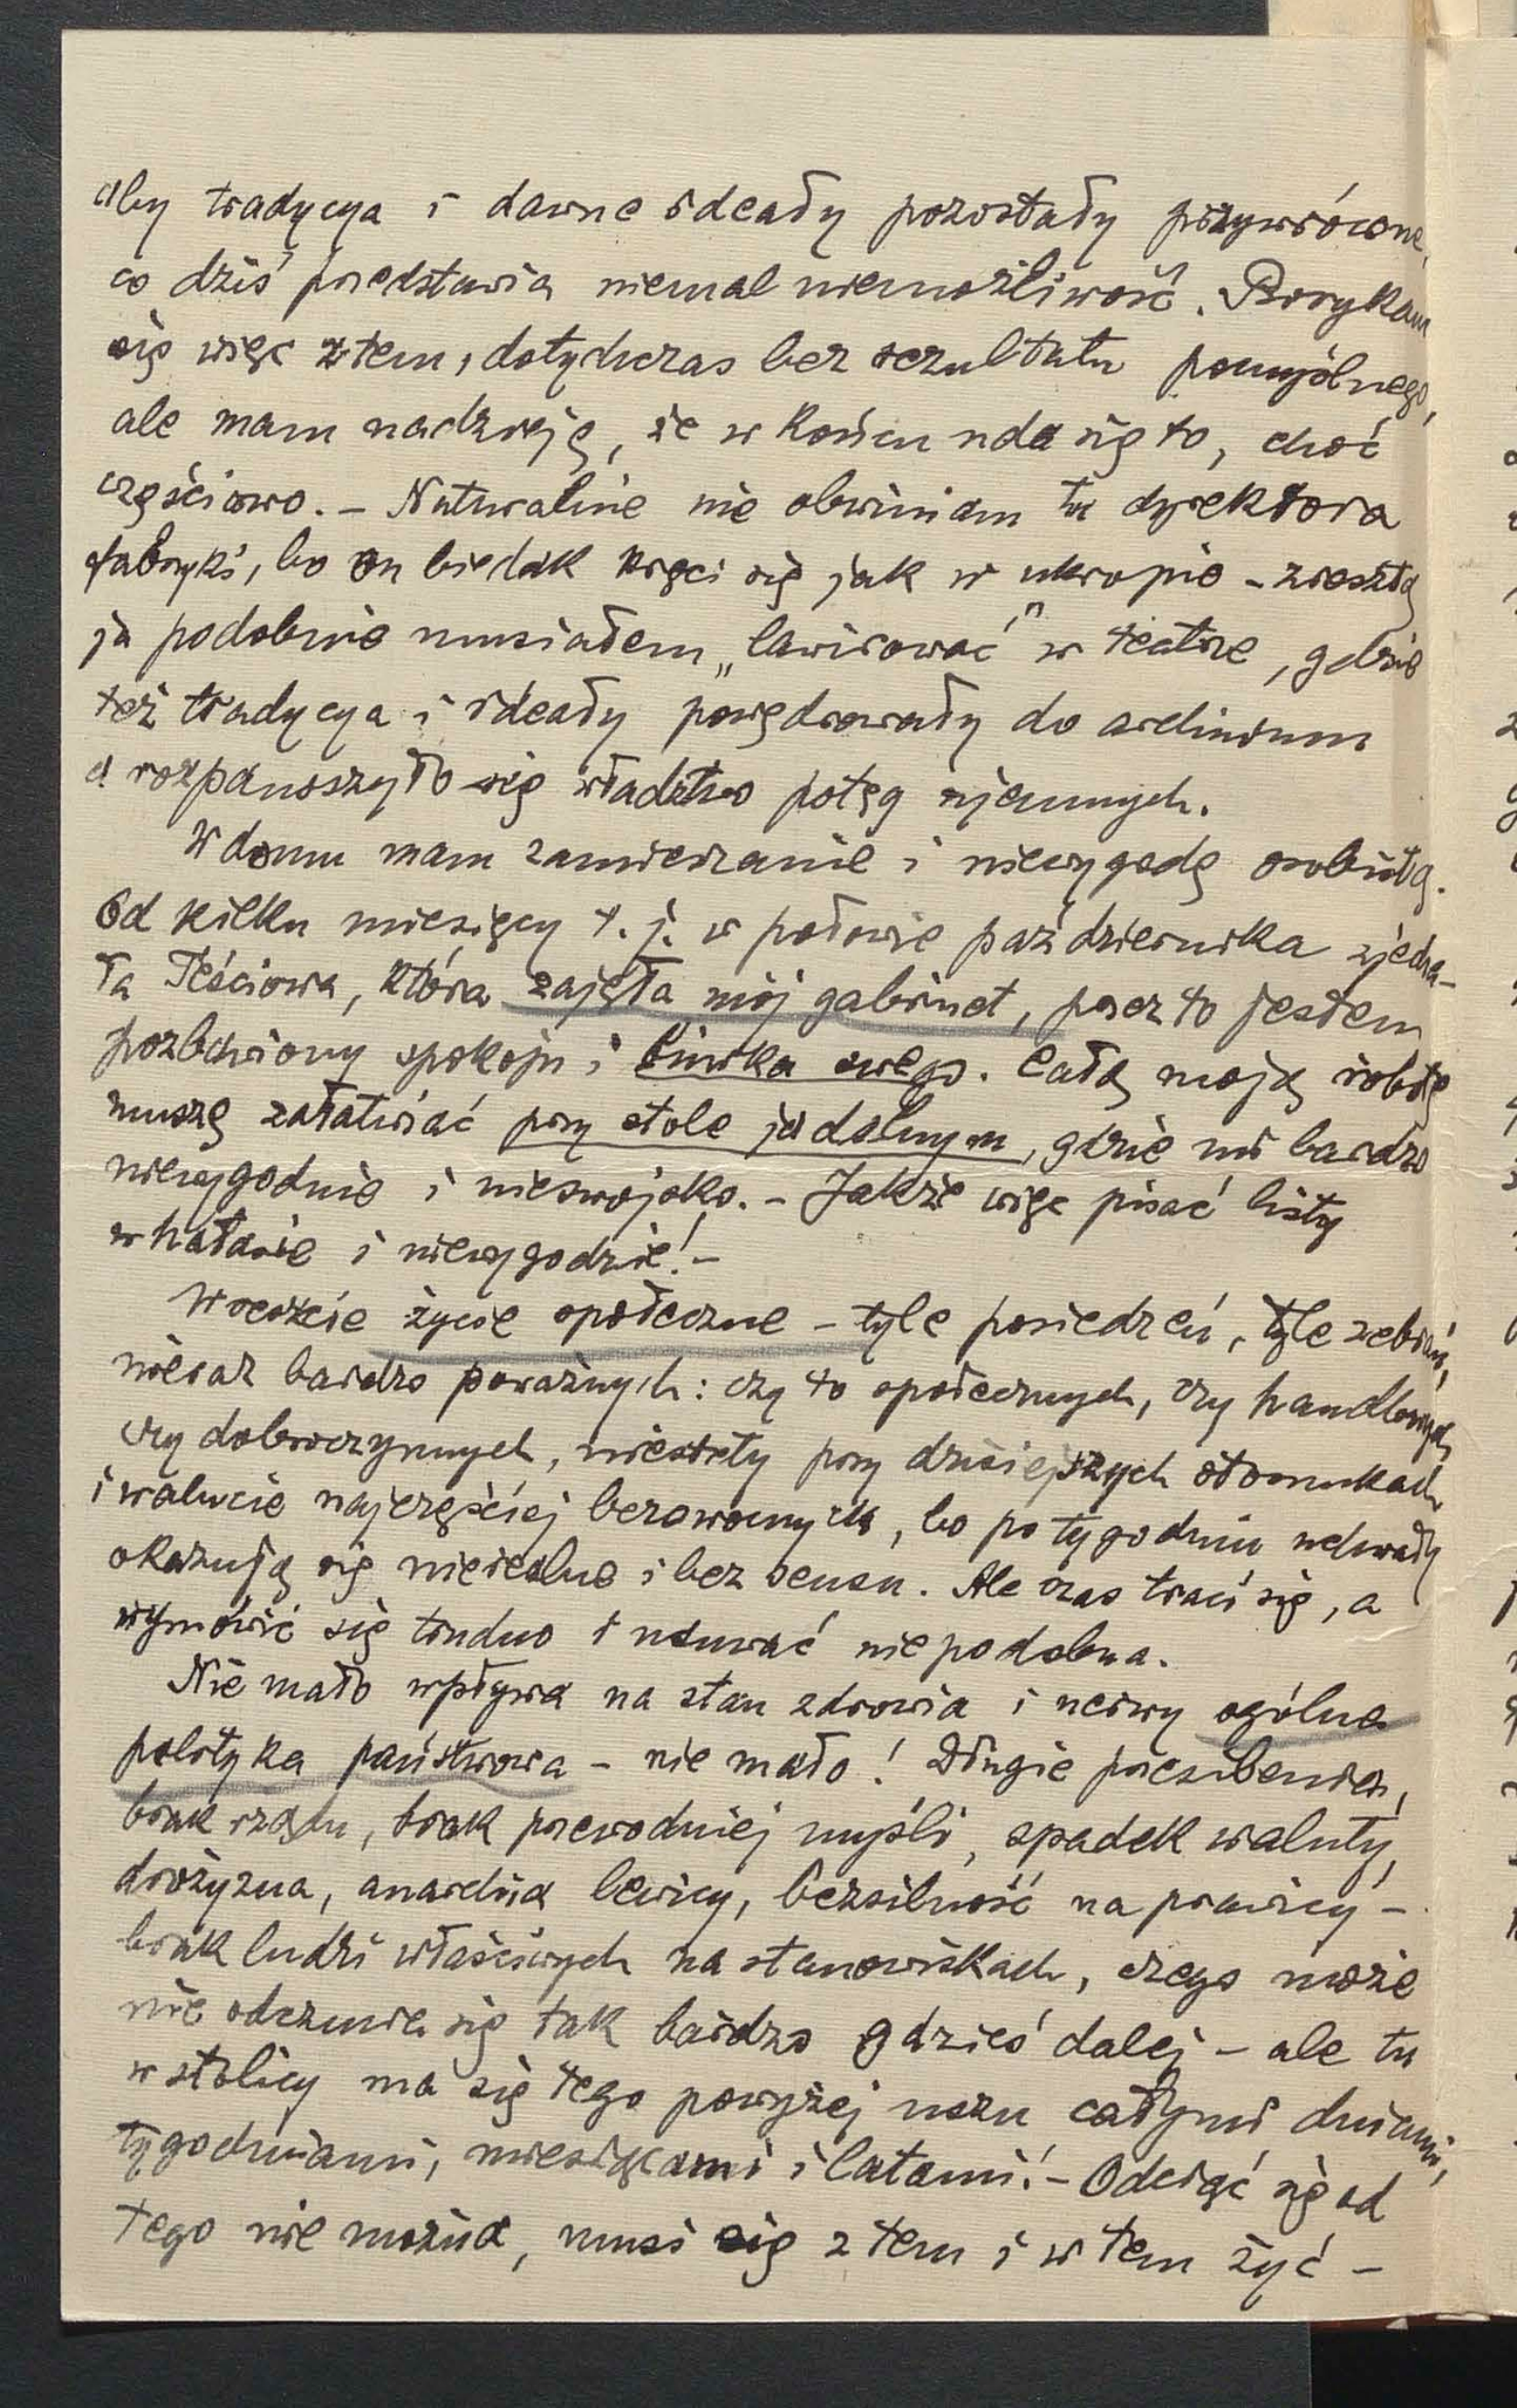 aby tradycya i dawne ideały pozostały przywrócone,
co dziś przedstawia niemal niemożliwość. Borykam
się więc z tem, dotychczas bez rezultatu pomyślnego,
ale mam nadzieję, że w końcu uda się to, choć
częściowo. – Naturalnie nie obwiniam tu dyrektora
fabryki, bo on biedak kręci się jak w ukropie – zresztą
ja podobnie musiałem „lawirować” w teatrze, gdzie
też tradycya i ideały powędrowały do archiwum
a rozpanoszyło się władztwo potęg ujemnych.
W domu mam zamieszanie i niewygodę osobistą.
Od kilku miesięcy t. j. w połowie października zjecha-
ła Teściowa, która zajęła mój gabinet, przez to jestem
pozbawiony spokoju i biurka swego. Całą moją robotę
muszę załatwiać przy stole jadalnym, gdzie mi bardzo
niewygodnie i nieswojsko. – Jakże więc pisać listy
w hałasie i niewygodzie! –
Wreszcie życie społeczne – tyle posiedzeń, tyle zebrań,
nieraz bardzo poważnych: czy to społecznych, czy handlowych,
czy dobroczynnych, niestety przy dzisiejszych stosunkach
i walucie najczęściej bezowocnych, bo po tygodniu uchwały
okazują się nierealne i bez sensu. Ale czas traci się, a
wymówić się trudno i usuwać niepodobna.
Nie mało wpływa na stan zdrowia i nerwy ogólna
polityka państwowa – nie mało! Długie przesilenia,
brak rządu, brak przewodniej myśli, spadek waluty,
drożyzna, anarchia lewicy, bezsilność na prawicy –
brak ludzi właściwych na stanowiskach, czego może
nie odczuwa się tak bardzo gdzieś dalej – ale tu
w stolicy ma się tego powyżej uszu całymi dniami,
tygodniami, miesiącami i latami! – Odciąć się od
tego nie można, musi się z tem i w tem żyć –